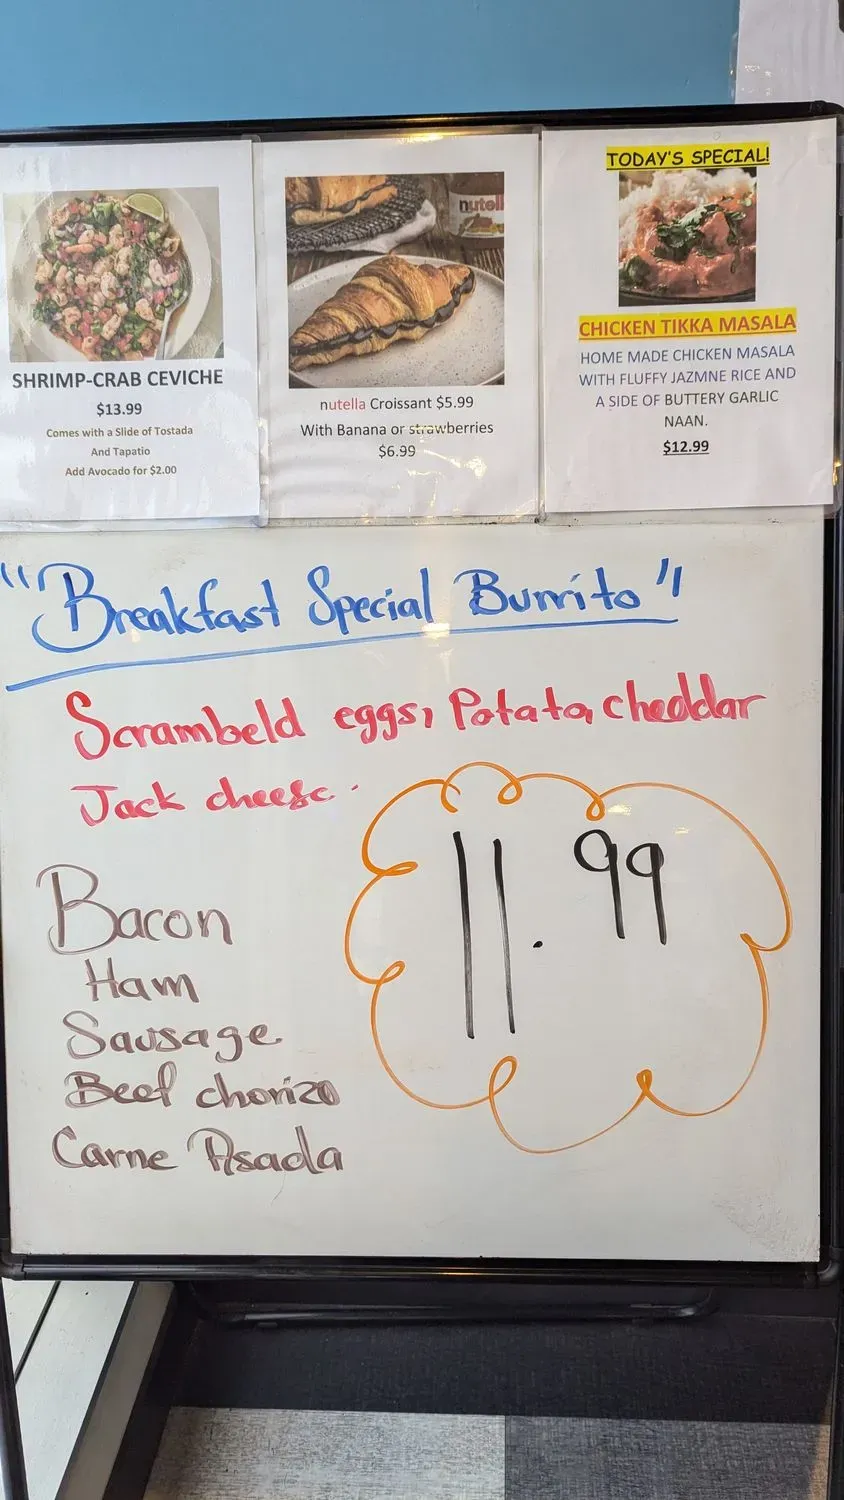 SHRIMP-CRAB CEVICHE
$13.99
Comes with a Slide of Tostada
And Tapatio
Add Avocado for $2.00
nutell
nutella Croissant $5.99
With Banana or strawberries
$6.99
TODAY'S SPECIAL!
CHICKEN TIKKA MASALA
HOME MADE CHICKEN MASALA
WITH FLUFFY JAZMNE RICE AND
A SIDE OF BUTTERY GARLIC
NAAN.
$12.99
"Breakfast Special Burrito"
Scrambeld eggs, Potato, cheddar
Jack cheese.
11.99
Bacon
Ham
Sausage
Beef chorizo
Carne Asada